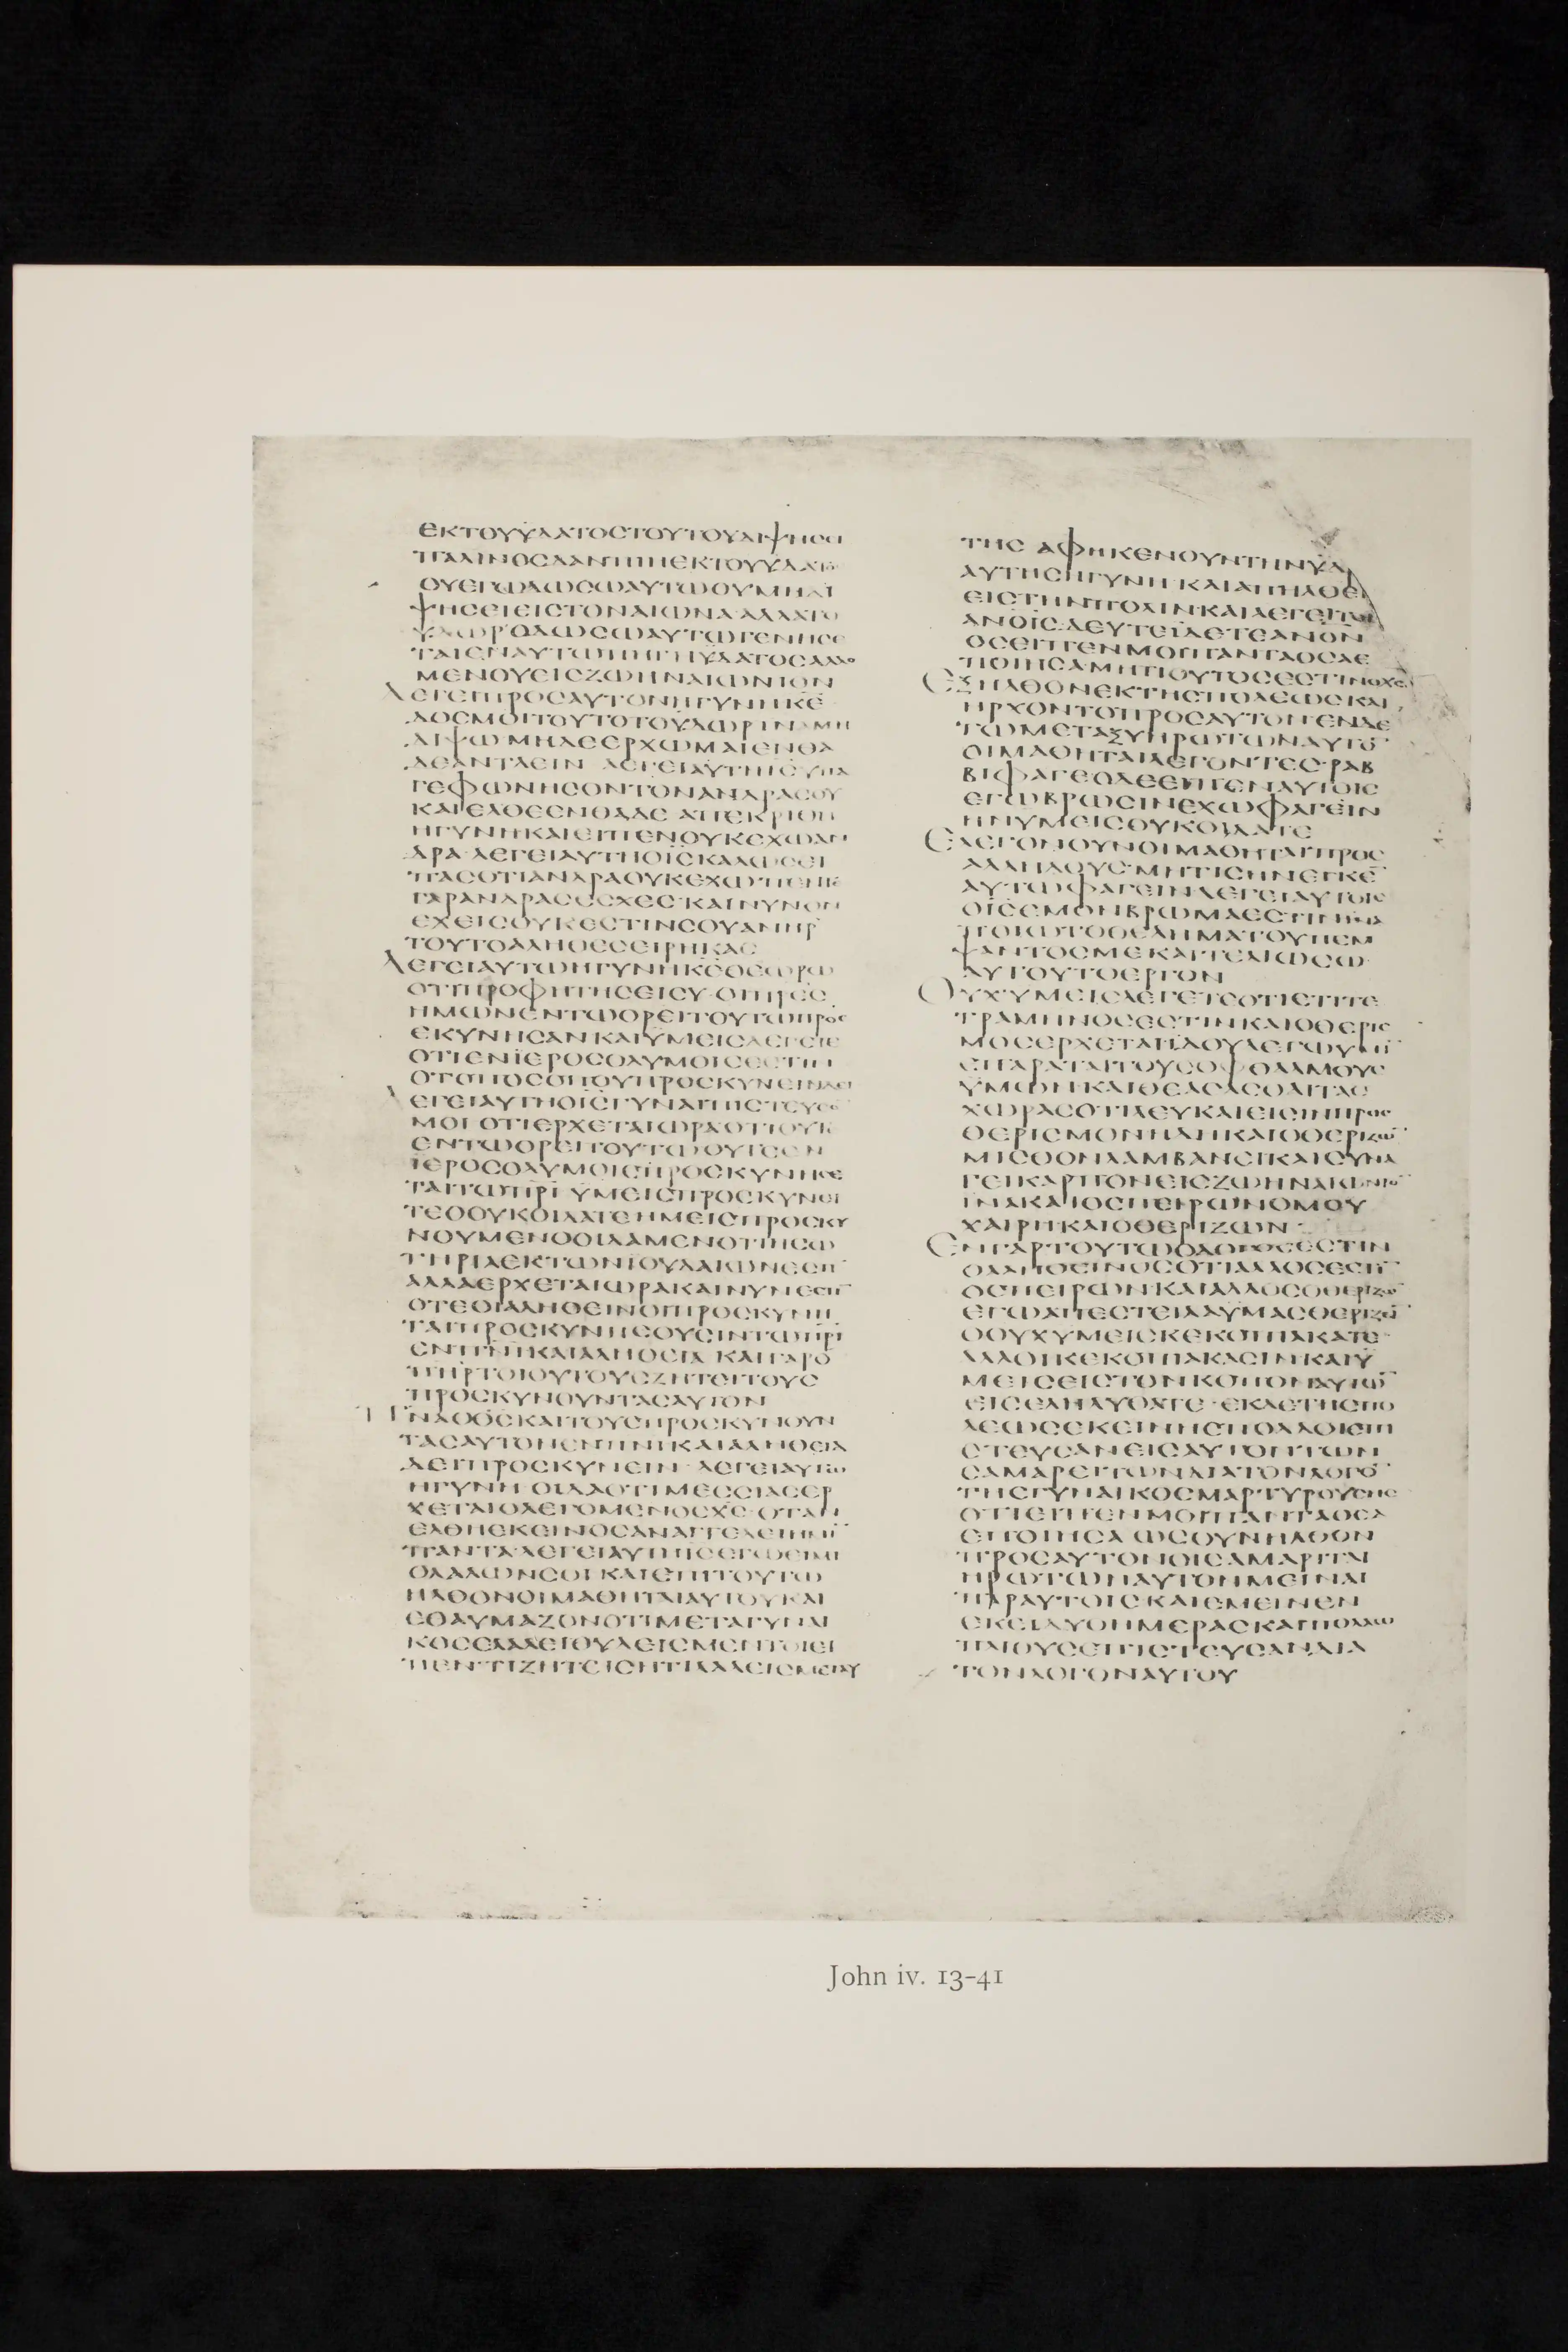 ΕΚΤΟΥΫΔΑΤΟΣΤΟΥΤΟΥΔΙΨΗΣΕΙ
ΠΑΛΙΝΟΣΔΑΝΠΙΗΕΚΤΟΥΫΔΑΤΟ
ΟΥΕΓΩΔΩΣΩΑΥΤΩΟΥΜΗΔΙ
ΨΗΣΕΙΕΙΣΤΟΝΑΙΩΝΑ·ΑΛΛΑΤΟ
ΫΔΩΡΟΔΩΣΩΑΥΤΩΓΕΝΗΣΕ
ΤΑΙΕΝΑΥΤΩΠΗΓΗΫΔΑΤΟΣΑΛΛΟ
ΜΕΝΟΥΕΙΣΖΩΗΝΑΙΩΝΙΟΝ
ΛΕΓΕΙΠΡΟΣΑΥΤΟΝΗΓΥΝΗΚΕ
ΔΟΣΜΟΙΤΟΥΤΟΤΟΫΔΩΡΙΝΑΜΗ
ΔΙΨΩΜΗΔΕΕΡΧΩΜΑΙΕΝΘΑ
ΔΕΑΝΤΛΕΙΝ ΛΕΓΕΙΑΥΤΗΙΣΥΠΑ
ΓΕΦΩΝΗΣΟΝΤΟΝΑΝΔΡΑΣΟΥ
ΚΑΙΕΛΘΕΕΝΘΑΔΕ ΑΠΕΚΡΙΘΗ
ΗΓΥΝΗΚΑΙΕΙΠΕΝΟΥΚΕΧΩΑΝ
ΔΡΑ·ΛΕΓΕΙΑΥΤΗΟΙΣΚΑΛΩΣΕΙ
ΠΑΣΟΤΙΑΝΔΡΑΟΥΚΕΧΩ·ΠΕΝΤΕ
ΓΑΡΑΝΔΡΑΣΕΣΧΕΣ·ΚΑΙΝΥΝΟΝ
ΕΧΕΙΣΟΥΚΕΣΤΙΝΣΟΥΑΝΗΡ
ΤΟΥΤΟΑΛΗΘΕΣΕΙΡΗΚΑΣ
ΛΕΓΕΙΑΥΤΩΗΓΥΝΗΚΕΘΕΩΡΩ
ΟΤΙΠΡΟΦΗΤΗΣΕΙΣΥ·ΟΙΠΡΕΣ
ΗΜΩΝΕΝΤΩΟΡΕΙΤΟΥΤΩΠΡΟΣ
ΕΚΥΝΗΣΑΝΚΑΙΫΜΕΙΣΛΕΓΕΤΕ
ΟΤΙΕΝΪΕΡΟΣΟΛΥΜΟΙΣΕΣΤΙΝ
ΟΤΟΠΟΣΟΠΟΥΠΡΟΣΚΥΝΕΙΝΔΕΙ
ΛΕΓΕΙΑΥΤΗΟΙΣΓΥΝΑΙΠΙΣΤΕΥΣΟ
ΜΟΙΟΤΙΕΡΧΕΤΑΙΩΡΑΟΤΙΟΥΤΕ
ΕΝΤΩΟΡΕΙΤΟΥΤΩΟΥΤΕΕΝ
ΪΕΡΟΣΟΛΥΜΟΙΣΠΡΟΣΚΥΝΗΣΕ
ΤΑΙΤΩΠΡΙ ΫΜΕΙΣΠΡΟΣΚΥΝΕΙ
ΤΕΟΟΥΚΟΙΔΑΤΕΗΜΕΙΣΠΡΟΣΚΥ
ΝΟΥΜΕΝΟΟΙΔΑΜΕΝΟΤΙΗΣΩ
ΤΗΡΙΑΕΚΤΩΝΪΟΥΔΑΙΩΝΕΣΤΙ
ΑΛΛΑΕΡΧΕΤΑΙΩΡΑΚΑΙΝΥΝΕΣΤΙ
ΟΤΕΟΙΑΛΗΘΕΙΝΟΙΠΡΟΣΚΥΝΗ
ΤΑΙΠΡΟΣΚΥΝΗΣΟΥΣΙΝΤΩΠΡΙ
ΕΝΠΝΙΚΑΙΑΛΗΘΕΙΑ ΚΑΙΓΑΡΟ
ΠΗΡΤΟΙΟΥΤΟΥΣΖΗΤΕΙΤΟΥΣ
ΠΡΟΣΚΥΝΟΥΝΤΑΣΑΥΤΟΝ
ΠΝΑΟΘΣΚΑΙΤΟΥΣΠΡΟΣΚΥΝΟΥΝ
ΤΑΣΑΥΤΟΝΕΝΠΝΙΚΑΙΑΛΗΘΕΙΑ
ΔΕΙΠΡΟΣΚΥΝΕΙΝ·ΛΕΓΕΙΑΥΤΩ
ΗΓΥΝΗ·ΟΙΔΑΟΤΙΜΕΣΣΙΑΣΕΡ
ΧΕΤΑΙΟΛΕΓΟΜΕΝΟΣΧΣ·ΟΤΑΝ
ΕΛΘΗΕΚΕΙΝΟΣΑΝΑΓΓΕΛΕΙΗΜΙ
ΠΑΝΤΑ·ΛΕΓΕΙΑΥΤΗΙΣΕΓΩΕΙΜΙ
ΟΛΑΛΩΝΣΟΙΚΑΙΕΠΙΤΟΥΤΩ
ΗΛΘΟΝΟΙΜΑΘΗΤΑΙΑΥΤΟΥΚΑΙ
ΕΘΑΥΜΑΖΟΝΟΤΙΜΕΤΑΓΥΝΑΙ
ΚΟΣΕΛΑΛΕΙΟΥΔΕΙΣΜΕΝΤΟΙΕΙ
ΠΕΝΤΙΖΗΤΕΙΣΗΤΙΛΑΛΕΙΣΜΕΤΑΥ
ΤΗΣ ΑΦΗΚΕΝΟΥΝΤΗΝΥΔ
ΑΥΤΗΣΗΓΥΝΗ ΚΑΙΑΠΗΛΘΕ
ΕΙΣΤΗΝΠΟΛΙΝ·ΚΑΙΛΕΓΕΙΤΟΙ
ΑΝΟΙΣ·ΔΕΥΤΕΪΔΕΤΕΑΝΟΝ
ΟΣΕΙΠΕΝΜΟΙΠΑΝΤΑΟΣΑΕ
ΠΟΙΗΣΑΜΗΤΙΟΥΤΟΣΕΣΤΙΝΟΧΣ
ΕΞΗΛΘΟΝΕΚΤΗΣΠΟΛΕΩΣΚΑΙ
ΗΡΧΟΝΤΟΠΡΟΣΑΥΤΟΝΕΝΔΕ
ΤΩΜΕΤΑΞΥΗΡΩΤΩΝΑΥΤΟ
ΟΙΜΑΘΗΤΑΙΛΕΓΟΝΤΕΣ·ΡΑΒ
ΒΙΦΑΓΕΟΔΕΕΙΠΕΝΑΥΤΟΙΣ
ΕΓΩΒΡΩΣΙΝΕΧΩΦΑΓΕΙΝ
ΗΝΥΜΕΙΣΟΥΚΟΙΔΑΤΕ
ΕΛΕΓΟΝΟΥΝΟΙΜΑΘΗΤΑΙΠΡΟΣ
ΑΛΛΗΛΟΥΣ·ΜΗΤΙΣΗΝΕΓΚΕ
ΑΥΤΩΦΑΓΕΙΝΛΕΓΕΙΑΥΤΟΙΣ
ΟΙΣΕΜΟΝΒΡΩΜΑΕΣΤΙΝΙΝΑ
ΠΟΙΩΤΟΘΕΛΗΜΑΤΟΥΠΕΜ
ΨΑΝΤΟΣΜΕΚΑΙΤΕΛΙΩΣΩ
ΑΥΤΟΥΤΟΕΡΓΟΝ
ΟΥΧΥΜΕΙΣΛΕΓΕΤΕΟΤΙΕΤΙΤΕ
ΤΡΑΜΗΝΟΣΕΣΤΙΝΚΑΙΟΘΕΡΙΣ
ΜΟΣΕΡΧΕΤΑΙΪΔΟΥΛΕΓΩΥΜΙ
ΕΠΑΡΑΤΑΙΤΟΥΣΟΦΘΑΛΜΟΥΣ
ΫΜΩΝΚΑΙΘΕΑΣΑΣΘΑΙΤΑΣ
ΧΩΡΑΣΟΤΙΛΕΥΚΑΙΕΙΣΙΝΠΡΟΣ
ΘΕΡΙΣΜΟΝΗΔΗΚΑΙΟΘΕΡΙΖΩ
ΜΙΣΘΟΝΛΑΜΒΑΝΕΙΚΑΙΣΥΝΑ
ΓΕΙΚΑΡΠΟΝΕΙΣΖΩΗΝΑΙΩΝΙΟ
ΙΝΑΚΑΙΟΣΠΕΙΡΩΝΟΜΟΥ
ΧΑΙΡΗΚΑΙΟΘΕΡΙΖΩΝ
ΕΝΓΑΡΤΟΥΤΩΟΛΟΓΟΣΕΣΤΙΝ
ΟΑΛΗΘΕΙΝΟΣΟΤΙΑΛΛΟΣΕΣΤΙ
ΟΣΠΕΙΡΩΝΚΑΙΑΛΛΟΣΟΘΕΡΙΖΩ
ΕΓΩΑΠΕΣΤΕΙΛΑΥΜΑΣΘΕΡΙΖΕΙ
ΟΟΥΧΥΜΕΙΣΚΕΚΟΠΙΑΚΑΤΕ·
ΑΛΛΟΙΚΕΚΟΠΙΑΚΑΣΙΝΚΑΙΫ
ΜΕΙΣΕΙΣΤΟΝΚΟΠΟΝΑΥΤΩ
ΕΙΣΕΛΗΛΥΘΑΤΕ·ΕΚΔΕΤΗΣΠΟ
ΛΕΩΣΕΚΕΙΝΗΣΠΟΛΛΟΙΕΠΙ
ΣΤΕΥΣΑΝΕΙΣΑΥΤΟΝΤΩΝ
ΣΑΜΑΡΕΙΤΩΝΔΙΑΤΟΝΛΟΓΟ
ΤΗΣΓΥΝΑΙΚΟΣΜΑΡΤΥΡΟΥΣΗΣ
ΟΤΙΕΙΠΕΝΜΟΙΠΑΝΤΑΟΣΑ
ΕΠΟΙΗΣΑ ΩΣΟΥΝΗΛΘΟΝ
ΠΡΟΣΑΥΤΟΝΟΙΣΑΜΑΡΙΤΑΙ
ΗΡΩΤΩΝΑΥΤΟΝΜΕΙΝΑΙ
ΠΑΡΑΥΤΟΙΣΚΑΙΕΜΕΙΝΕΝ
ΕΚΕΙΔΥΟΗΜΕΡΑΣΚΑΙΠΟΛΛΩ
ΠΛΙΟΥΣΕΠΙΣΤΕΥΣΑΝΔΙΑ
ΤΟΝΛΟΓΟΝΑΥΤΟΥ
John iv. 13-41